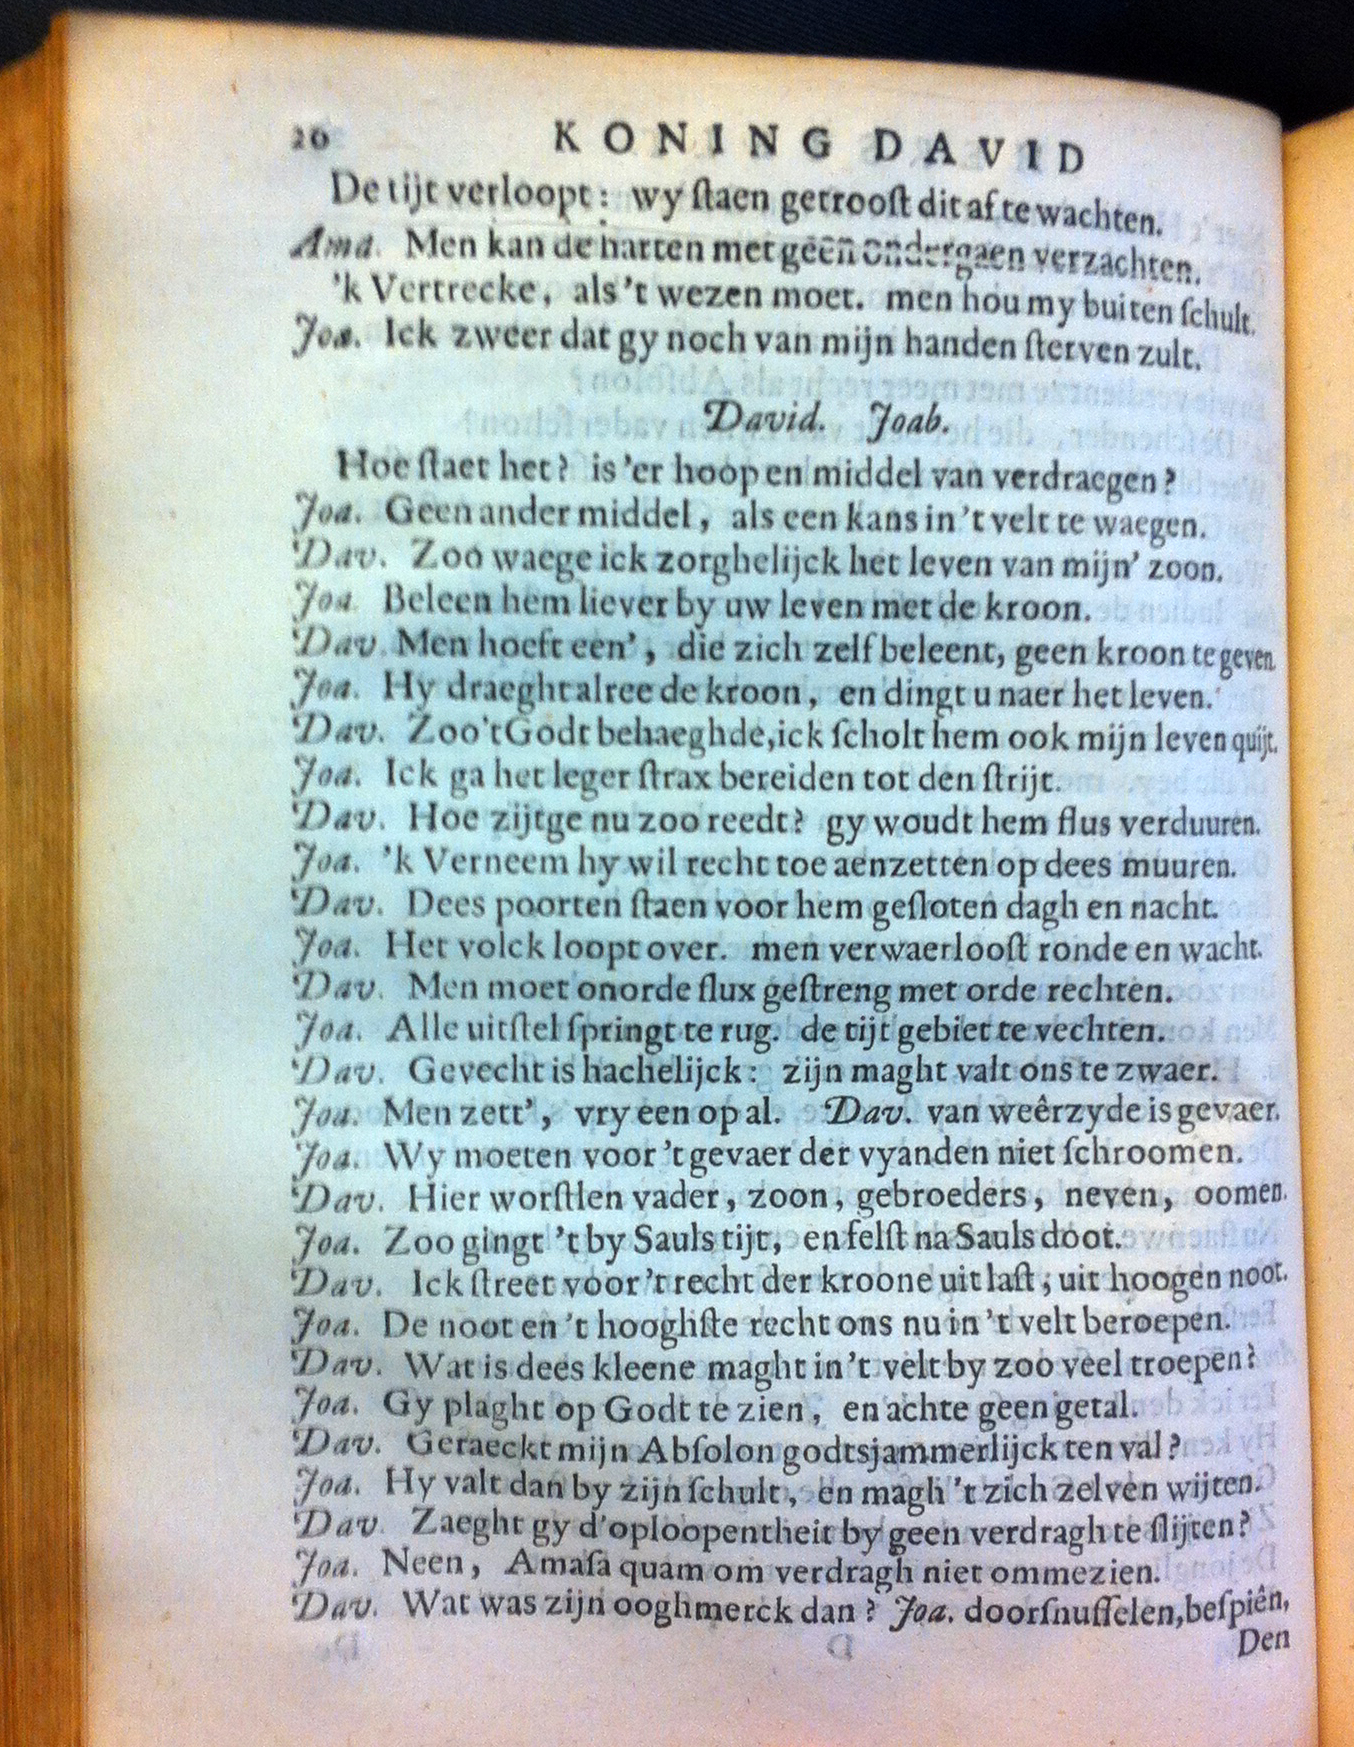 20 KONING DAVID
De tijt verloopt: wy ſtaen getrooſt dit af te wachten.
Ama. Men kan de harten met geen ondergaen verzachten.
'k Vertrecke, als 't wezen moet. men hou my buiten ſchult.
Joa. Ick zweer dat gy noch van mijn handen ſterven zult.
David. Joab.
Hoe ſtaet het? is 'er hoop en middel van verdraegen?
Joa. Geen ander middel, als een kans in 't velt te waegen.
Dav. Zoo waege ick zorghelijck het leven van mijn' zoon.
Joa. Beleen hem liever by uw leven met de kroon.
Dav. Men hoeft een', die zich zelf beleent, geen kroon te geven.
Joa. Hy draeght alree de kroon, en dingt u naer het leven.
Dav. Zoo't Godt behaeghde, ick ſcholt hem ook mijn leven quijt.
Joa. Ick ga het leger ſtrax bereiden tot den ſtrijt.
Dav. Hoe zijtge nu zoo reedt? gy woudt hem flus verduuren.
Joa. 'k Verneem hy wil recht toe aenzetten op dees muuren.
Dav. Dees poorten ſtaen voor hem geſloten dagh en nacht.
Joa. Het volck loopt over. men verwaerlooſt ronde en wacht.
Dav. Men moet onorde flux geſtreng met orde rechten.
Joa. Alle uitſtel ſpringt te rug. de tijt gebiet te vechten.
Dav. Gevecht is hachelijck: zijn maght valt ons te zwaer.
Joa. Men zett', vry een op al. Dav. van weêrzyde is gevaer.
Joa. Wy moeten voor 't gevaer der vyanden niet ſchroomen.
Dav. Hier worſtlen vader, zoon, gebroeders, neven, oomen.
Joa. Zoo gingt 't by Sauls tijt, en felſt na Sauls doot.
Dav. Ick ſtreet voor 't recht der kroone uit laſt, uit hoogen noot.
Joa. De noot en 't hooghſte recht ons nu in 't velt beroepen.
Dav. Wat is dees kleene maght in 't velt by zoo veel troepen?
Joa. Gy plaght op Godt te zien, en achte geen getal.
Dav. Geraeckt mijn Abſolon godtsjammerlijck ten val?
Joa. Hy valt dan by zijn ſchult, en magh 't zich zelven wijten.
Dav. Zaeght gy d'oploopentheit by geen verdragh te ſlijten?
Joa. Neen, Amaſa quam om verdragh niet ommezien.
Dav. Wat was zijn ooghmerck dan? Joa. doorſnuffelen, beſpiên,
Den